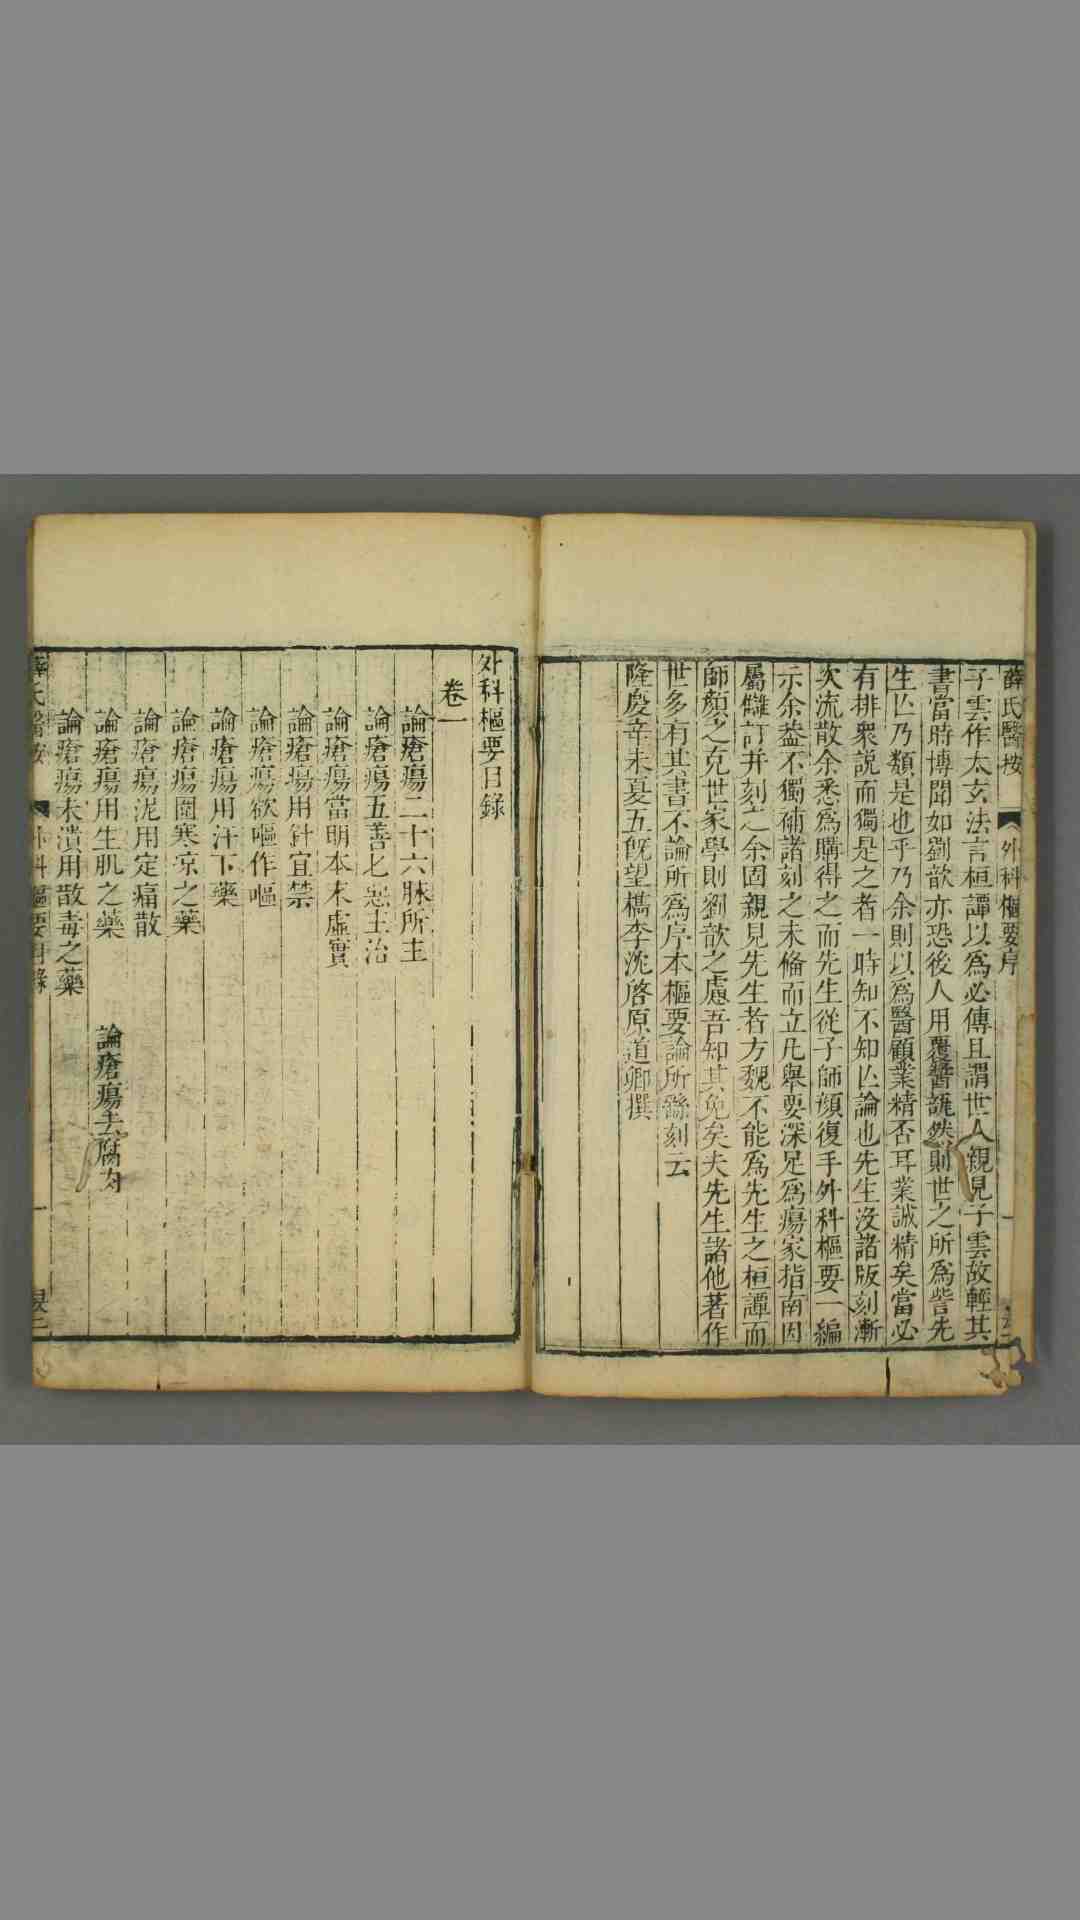 薛氏醫按
外科樞要序
一
子雲作太玄法言桓譚以爲必傳且謂世人親見子雲故輕其
書當時博聞如劉歆亦恐後人用覆醬瓿然則世之所爲訾先
生亾乃類是也乎乃余則以爲醫顧業精否耳業誠精矣當必
有排衆説而獨是之者一時知不知亾論也先生沒諸版刻漸
次流散余悉爲購得之而先生從子師顔復手外科樞要一編
示余葢不獨補諸刻之未備而立凡舉要深足爲瘍家指南因
屬讎訂并刻之余固親見先生者方魏不能爲先生之桓譚而
師顔之克世家學則劉歆之慮吾知其免矣夫先生諸他著作
世多有其書不論所爲序本樞要論所繇刻云
隆慶辛未夏五旣望檇李沈啓原道卿撰
外科樞要目錄
卷一
論瘡瘍二十六脉所主
論瘡瘍五善七惡主治
論瘡瘍當明本末虛實
論瘡瘍用針宜禁
論瘡瘍欲嘔作嘔
論瘡瘍用汗下藥
論瘡瘍圍寒凉之藥
論瘡瘍泥用定痛散
論瘡瘍用生肌之藥
論瘡瘍去腐肉
論瘡瘍未潰用散毒之藥
薛氏醫按
外科樞要目錄
一